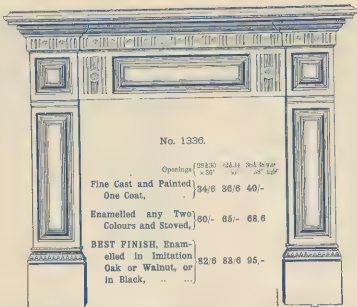 No. 1336.
Openings
Fine Cast and Painted One Coat, 34/6 36/6 40/-
Enamelled any Two Colours and Stoved, 60/- 65/- 68,6
BEST FINISH, Enam-
elled in Imitation
Oak or Walnut, or
in Black, .. ... 82/6 88/6 95,-